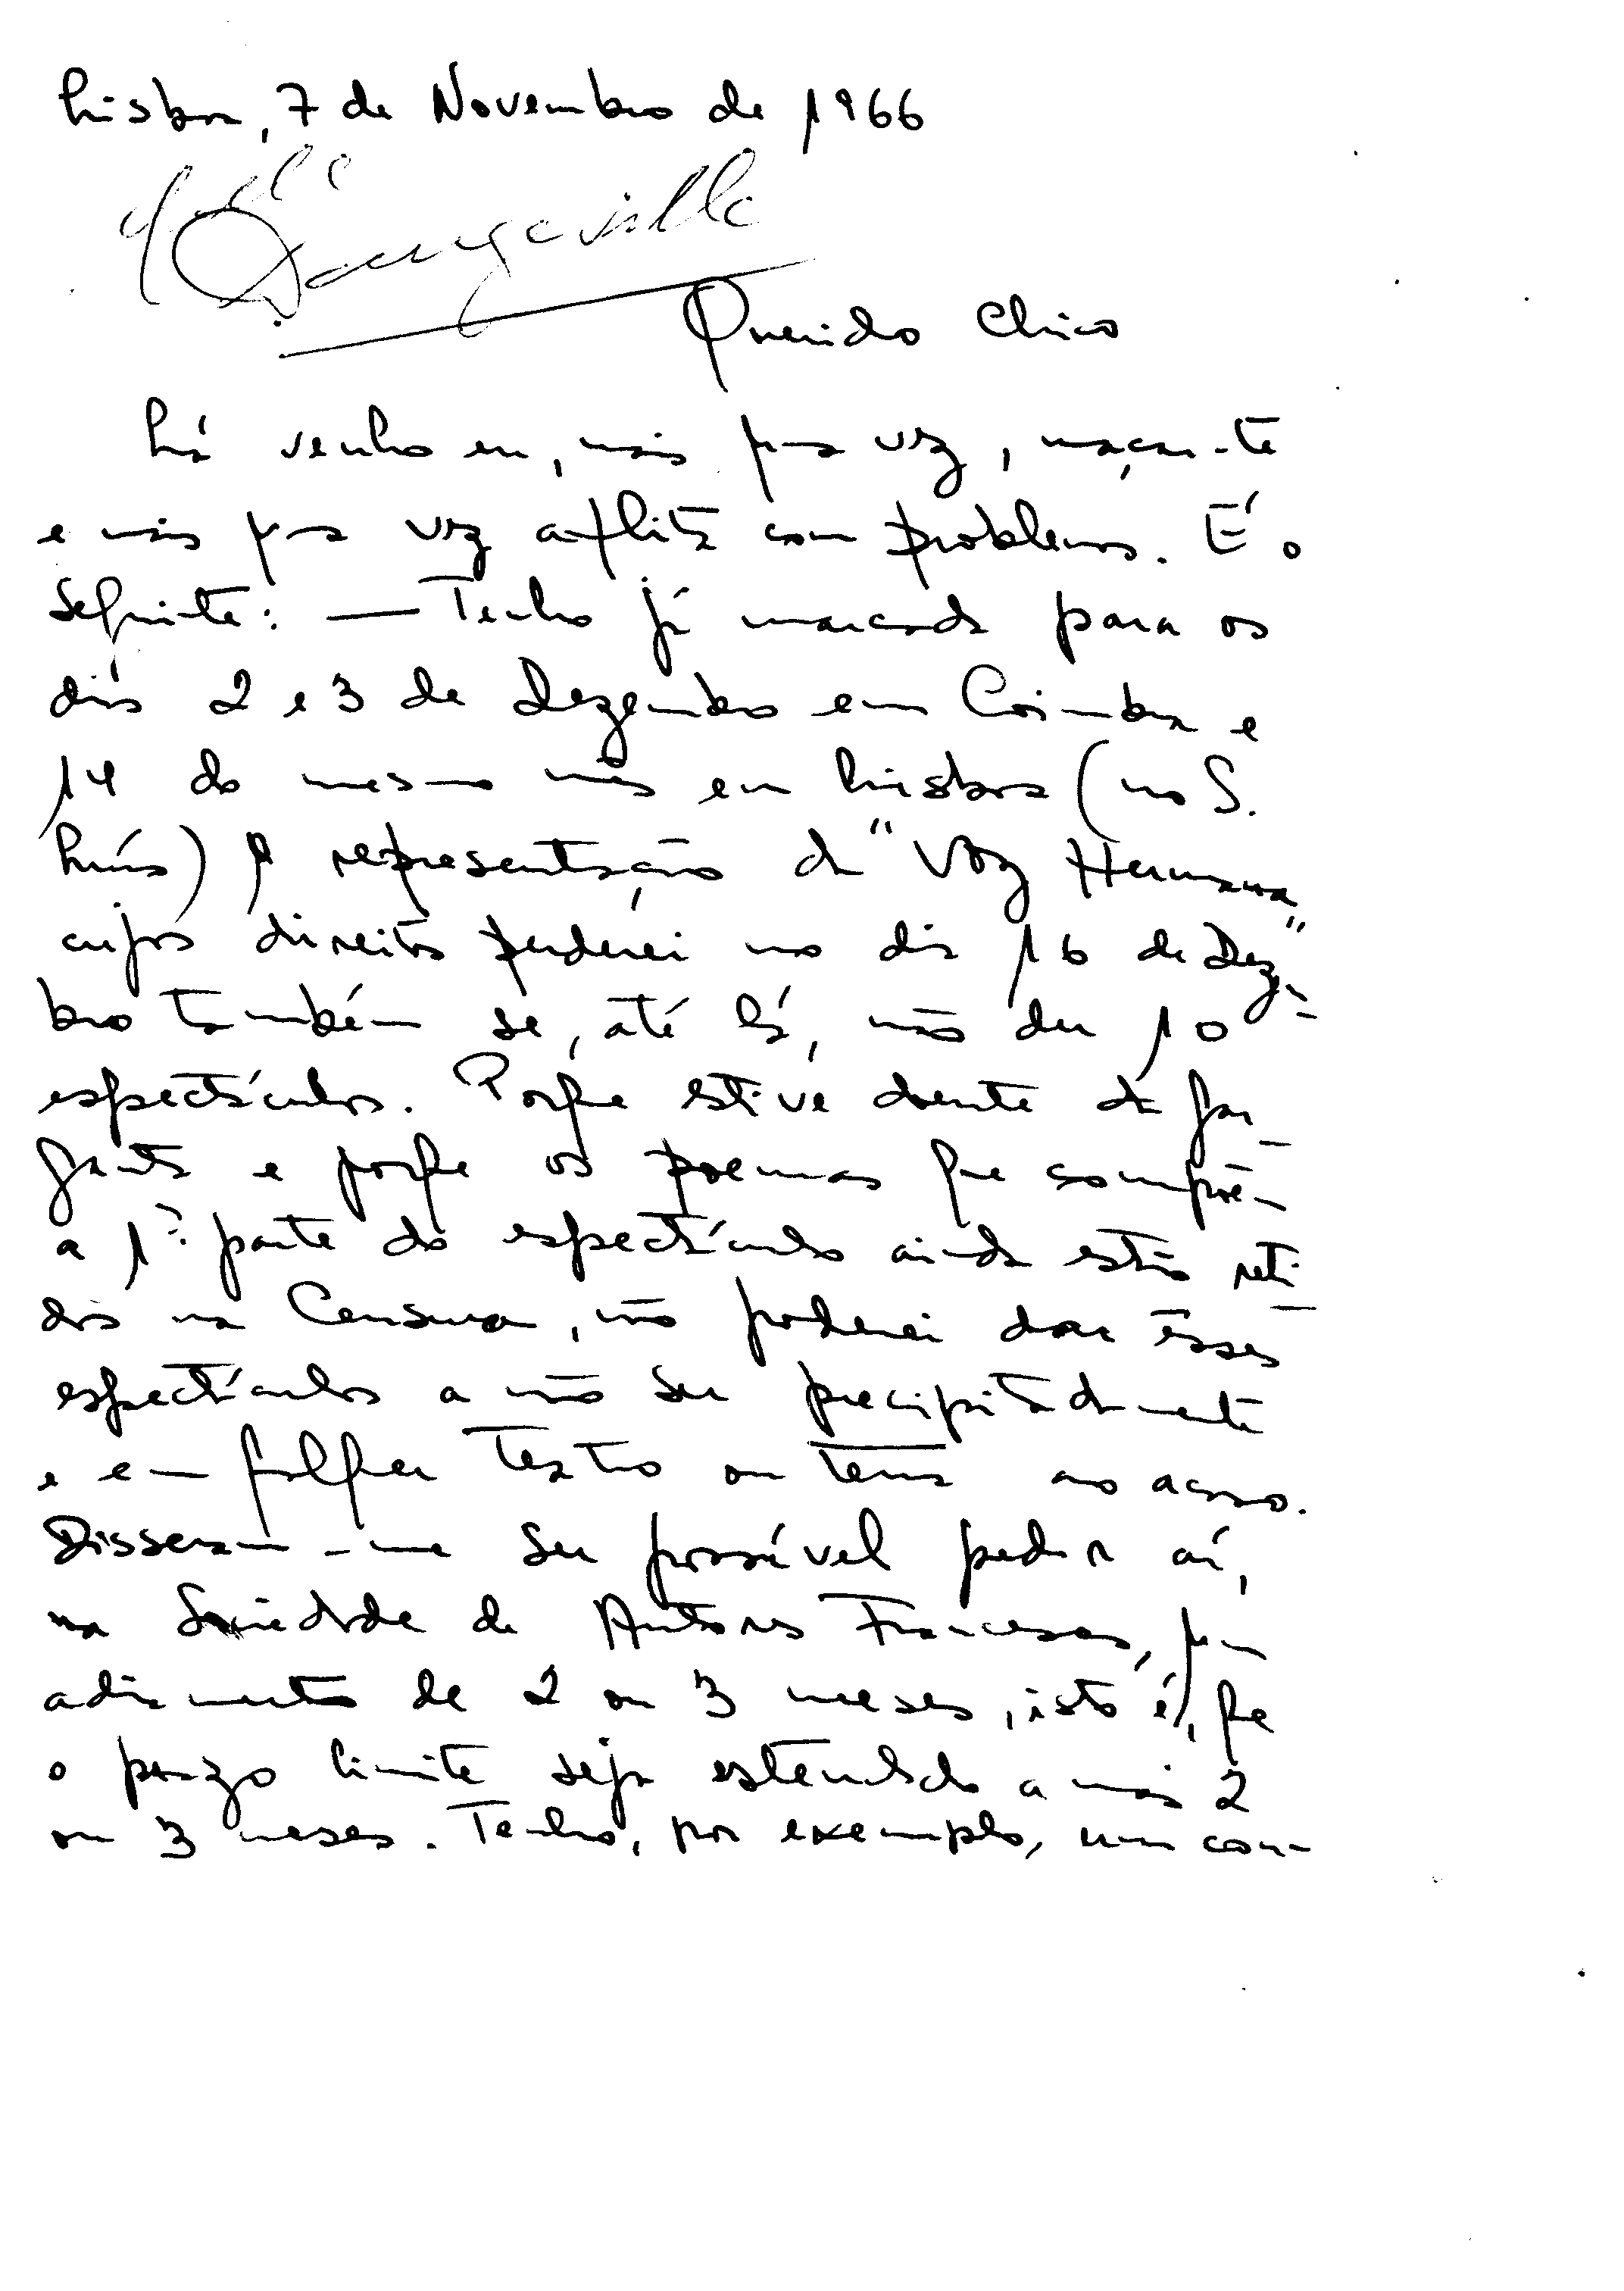 Lisboa, 7 de Novembro de 1966
Querido Chico
Lá venho eu, mais uma vez, maçar-te
e mais uma vez aflita com problemas. É o
seguinte: — Tenho já marcada para os
dias 2 e 3 de Dezembro em Coimbra e
14 do mesmo mês em Lisboa (no S.
Luís) a representação da "Voz Humana"
cujos direitos perderei no dia 16 de Dezem-
bro também se, até lá, não der 10
espectáculos. Porque estive doente da gar-
ganta e porque os poemas que compõem
a 1ª parte do espectáculo ainda estão reti-
dos na Censura, não poderei dar êsses
espectáculos a não ser precipitadamente
e em qualquer teatro ou terra ao acaso.
Disseram-me ser possível pedir aí,
na Sociedade de Autores Franceses, um
adiamento de 2 ou 3 meses, isto é, que
o prazo limite seja estendido a mais 2
ou 3 meses. Tenho, por exemplo, um con-